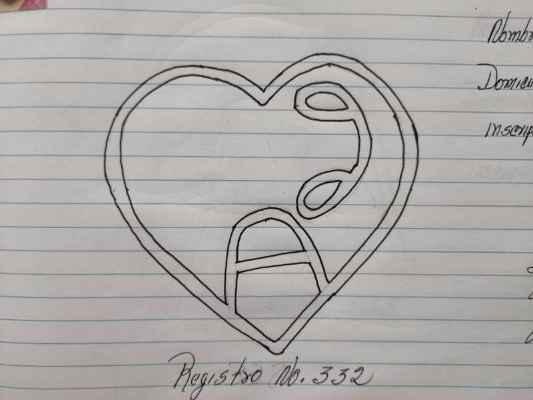 Nombr
Domici
Inscrip
Registro No. 332